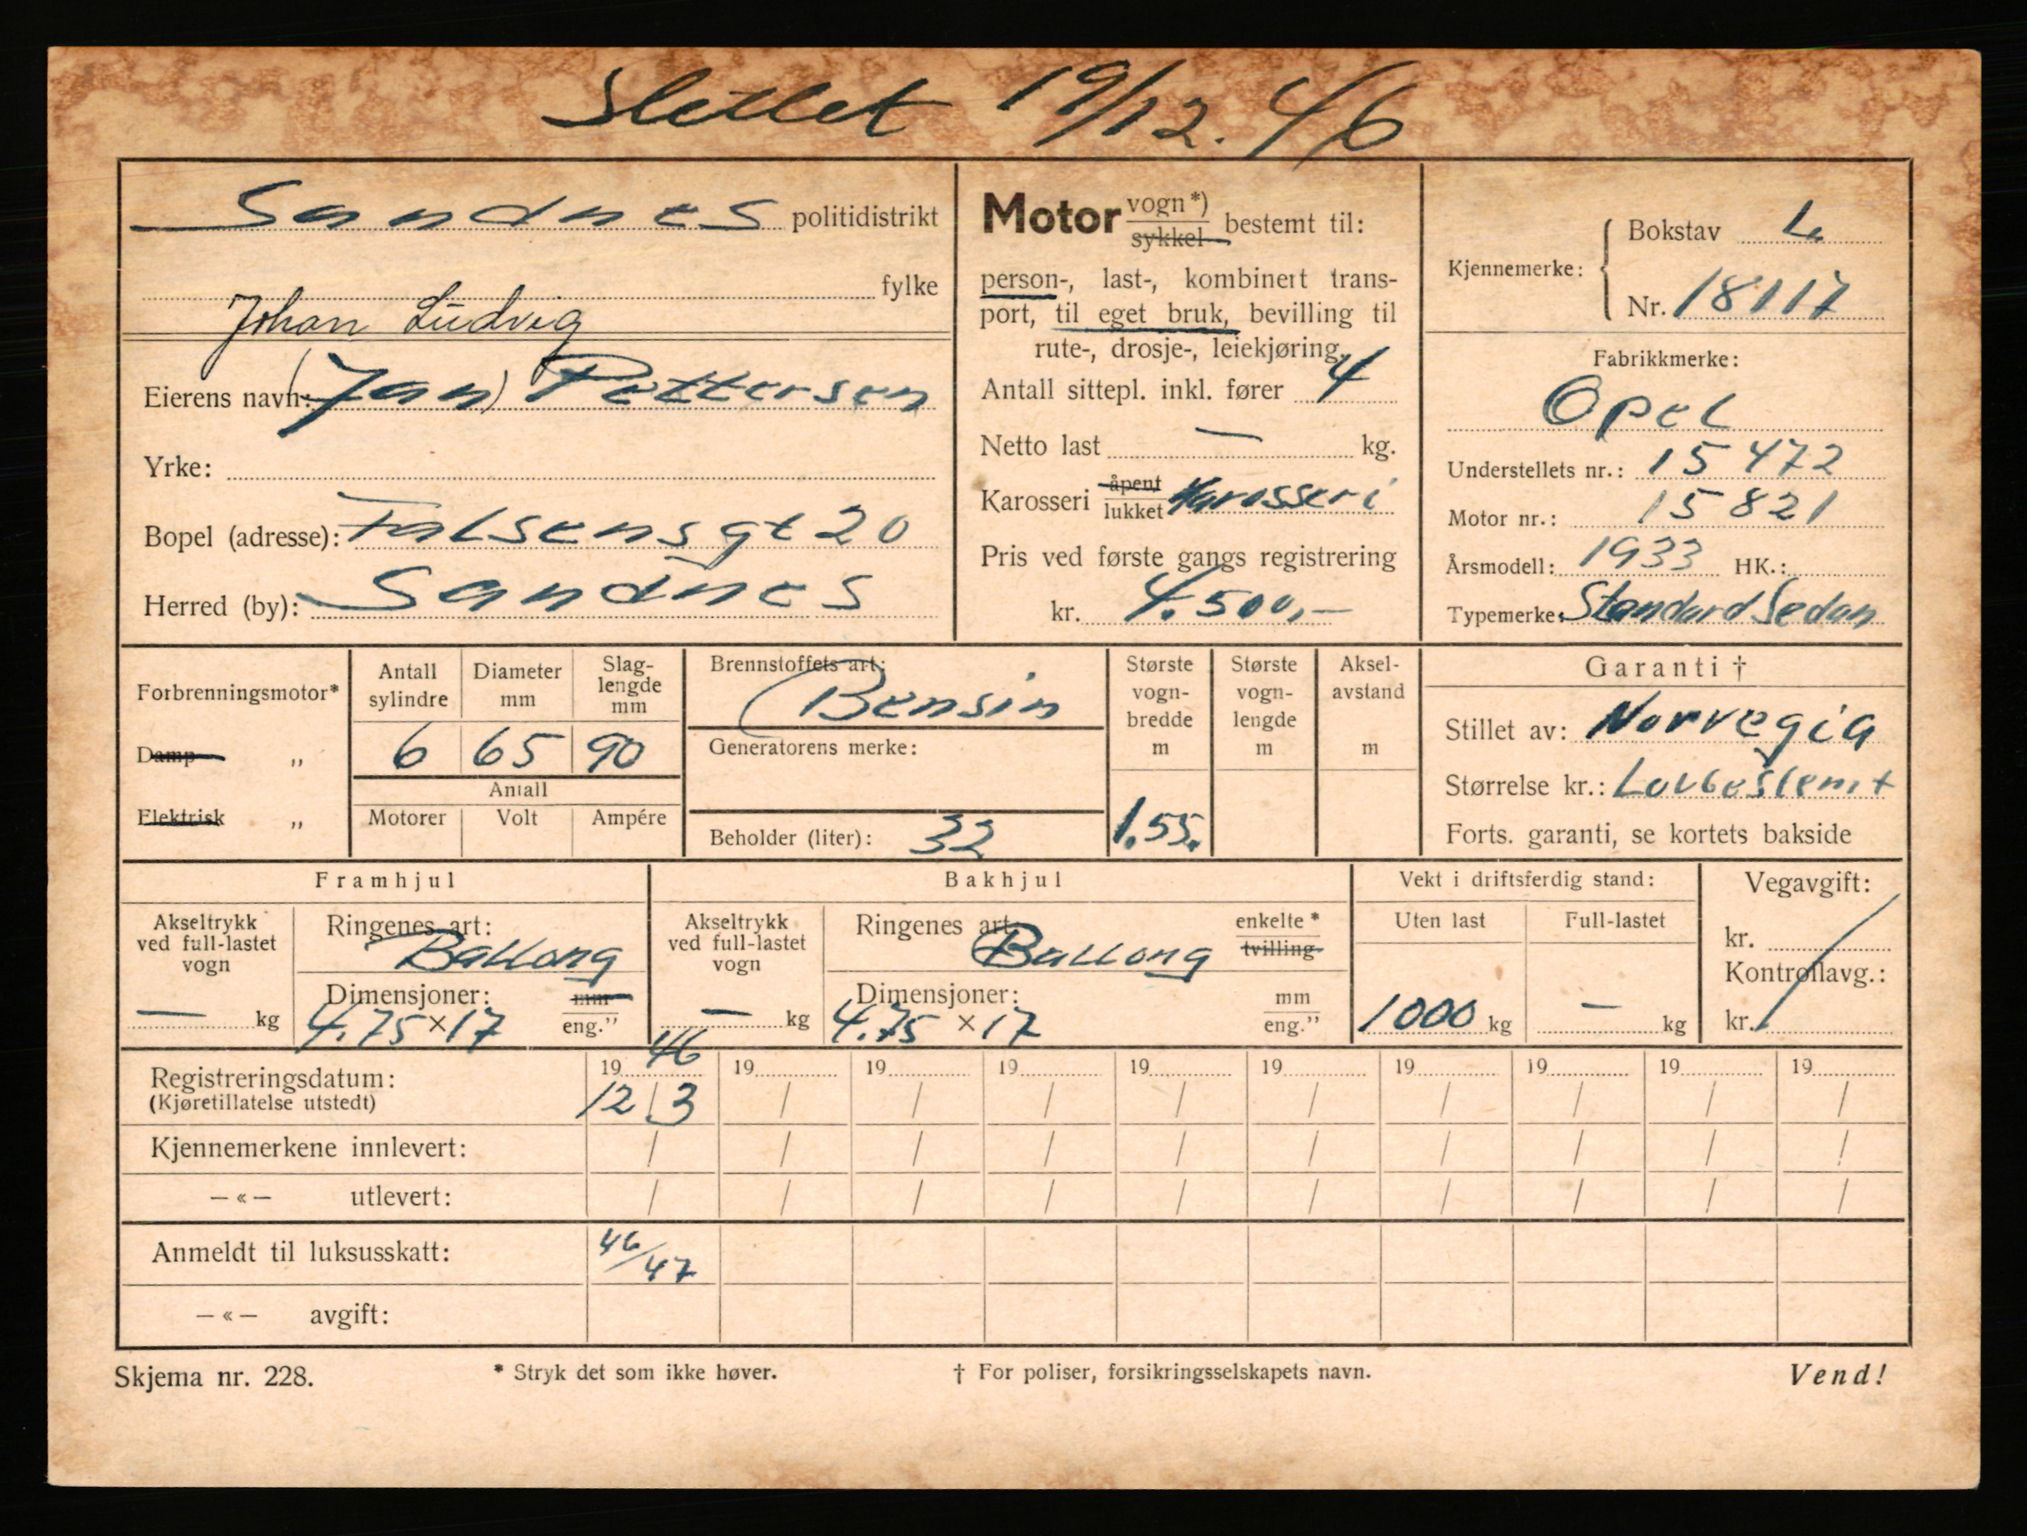 Slettet 19/12. 46
Sandnes politidistrikt
fylke
Johan Ludvig
Eierens navn: (Jan) Pettersen
Yrke:
Bopel (adresse): Falsensgt 20
Herred (by): Sandnes
Motor vogn*) sykkel bestemt til:
person-, last-, kombinert trans-
port, til eget bruk, bevilling til
rute-, drosje-, leiekjøring.
Antall sittepl. inkl. fører 4
Netto last — kg.
Karosseri åpent lukket Karosseri
Pris ved første gangs registrering
kr. 4.500,-
Kjennemerke: Bokstav L.
Nr. 18117
Fabrikkmerke:
Opel
Understellets nr.: 15472
Motor nr.: 15821
Årsmodell: 1933 HK.:
Typemerke: Standard Sedan
Forbrenningsmotor*
Damp „
Elektrisk „
Antall sylindre Diameter mm Slag-lengde mm
6 65 90
Antall
Motorer Volt Ampére
Brennstoffets art:
Bensin
Generatorens merke:
Beholder (liter): 32
Største vogn-bredde m
1.55.
Største vogn-lengde m
Aksel-avstand m
Garanti †
Stillet av: Norvegia
Størrelse kr.: Lovbestemt
Forts. garanti, se kortets bakside
Framhjul
Akseltrykk ved full-lastet vogn
— kg
Ringenes art:
Ballong
Dimensjoner: mm
4.75 × 17 eng.”
Bakhjul
Akseltrykk ved full-lastet vogn
— kg
Ringenes art: enkelte*
Ballong tvilling
Dimensjoner: mm
4.75 × 17 eng.”
Vekt i driftsferdig stand:
Uten last Full-lastet
1000 kg — kg
Vegavgift:
kr.
Kontrollavg.:
kr.
Registreringsdatum: 19 46 19 19 19 19 19 19 19 19 19
(Kjøretillatelse utstedt) 12 / 3 / / / / / / / / /
Kjennemerkene innlevert: / / / / / / / / / /
— « — utlevert: / / / / / / / / / /
Anmeldt til luksusskatt: 46/47
— « — avgift:
Skjema nr. 228. * Stryk det som ikke høver. † For poliser, forsikringsselskapets navn. Vend!